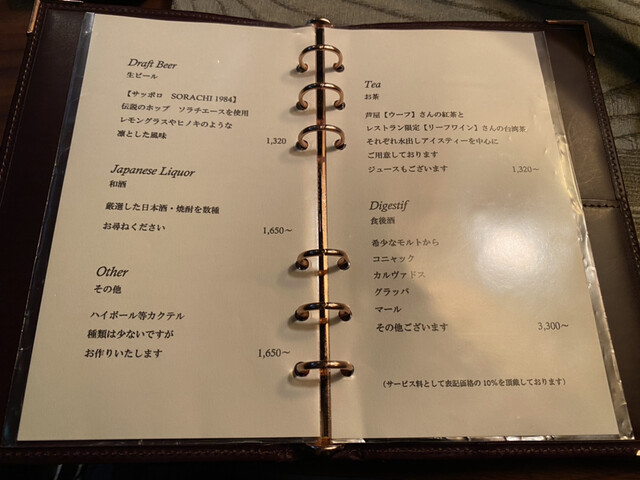 Draft Beer
生ビール
【サッポロ SORACHI 1984】
伝説のホップ ソラチエースを使用
レモングラスやヒノキのような
凛とした風味 1,320
Japanese Liquor
和酒
厳選した日本酒・焼酎を数種
お尋ねください 1,650～
Other
その他
ハイボール等カクテル
種類は少ないですが
お作りいたします 1,650～
Tea
お茶
芦屋【ウーフ】さんの紅茶と
レストラン限定【リーフワイン】さんの台湾茶
それぞれ水出しアイスティーを中心に
ご用意しております
ジュースもございます 1,320～
Digestif
食後酒
希少なモルトから
コニャック
カルヴァドス
グラッパ
マール
その他ございます 3,300～
（サービス料として表記価格の10%を頂戴しております）